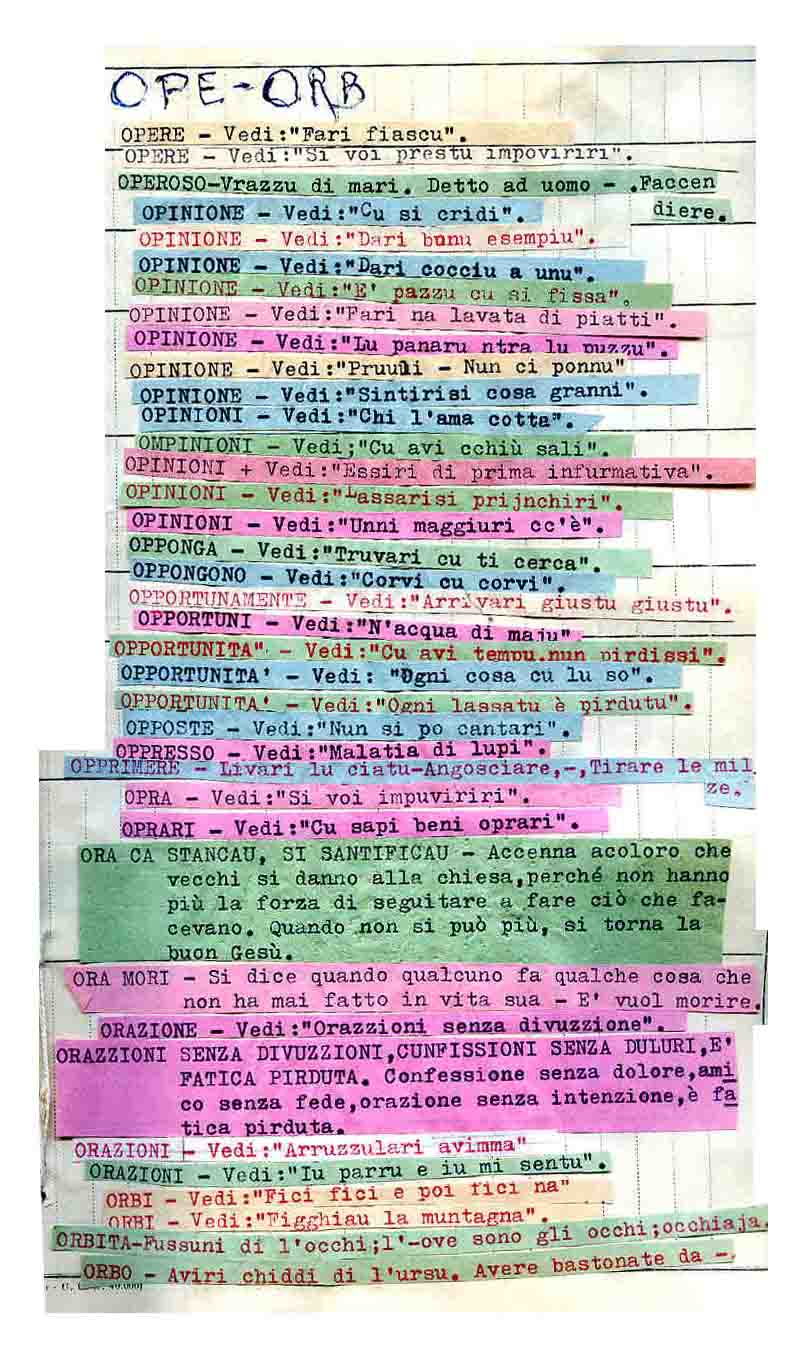 OPE-ORB
OPERE - Vedi:"Fari fiascu".
OPERE - Vedi:"Si voi prestu impoviriri".
OPEROSO-Vrazzu di mari. Detto ad uomo - .Faccen
diere.
OPINIONE - Vedi:"Cu si cridi".
OPINIONE - Vedi:"Dari bunu esempiu".
OPINIONE - Vedi:"Dari cocciu a unu".
OPINIONE - Vedi:"E' pazzu cu si fissa".
OPINIONE - Vedi:"Fari na lavata di piatti".
OPINIONE - Vedi:"Lu panaru ntra lu puzzu".
OPINIONE - Vedi:"Pruuli - Nun ci ponnu"
OPINIONE - Vedi:"Sintirisi cosa granni".
OPINIONI - Vedi:"Chi l'ama cotta".
OMPINIONI - Vedi;"Cu avi cchiù sali".
OPINIONI + Vedi:"Essiri di prima infurmativa".
OPINIONI - Vedi:"Lassarisi prijnchiri".
OPINIONI - Vedi:"Unni maggiuri cc'è".
OPPONGA - Vedi:"Truvari cu ti cerca".
OPPONGONO - Vedi:"Corvi cu corvi".
OPPORTUNAMENTE - Vedi:"Arrivari giustu giustu".
OPPORTUNI - Vedi:"N'acqua di maju"
OPPORTUNITA" - Vedi:"Cu avi tempu.nun pirdissi".
OPPORTUNITA' - Vedi: "Ogni cosa cu lu so".
OPPORTUNITA' - Vedi:"Ogni lassatu è pirdutu".
OPPOSTE - Vedi:"Nun si po cantari".
OPPRESSO - Vedi:"Malatia di lupi".
OPPRIMERE - Livari lu ciatu-Angosciare,-,Tirare le mil
ze.
OPRA - Vedi:"Si voi impuviriri".
OPRARI - Vedi:"Cu sapi beni oprari".
ORA CA STANCAU, SI SANTIFICAU - Accenna acoloro che
vecchi si danno alla chiesa,perché non hanno
più la forza di seguitare a fare ciò che fa-
cevano. Quando non si può più, si torna la
buon Gesù.
ORA MORI - Si dice quando qualcuno fa qualche cosa che
non ha mai fatto in vita sua - E' vuol morire.
ORAZIONE - Vedi:"Orazzioni senza divuzzione".
ORAZZIONI SENZA DIVUZZIONI,CUNFISSIONI SENZA DULURI,E'
FATICA PIRDUTA. Confessione senza dolore,ami
co senza fede,orazione senza intenzione,è fa
tica pirduta.
ORAZIONI - Vedi:"Arruzzulari avimma"
ORAZIONI - Vedi:"Iu parru e iu mi sentu".
ORBI - Vedi:"Fici fici e poi fici na"
ORBI - Vedi:"Figghiau la muntagna".
ORBITA-Fussuni di l'occhi;l'-ove sono gli occhi;occhiaja.
ORBO - Aviri chiddi di l'ursu. Avere bastonate da -.